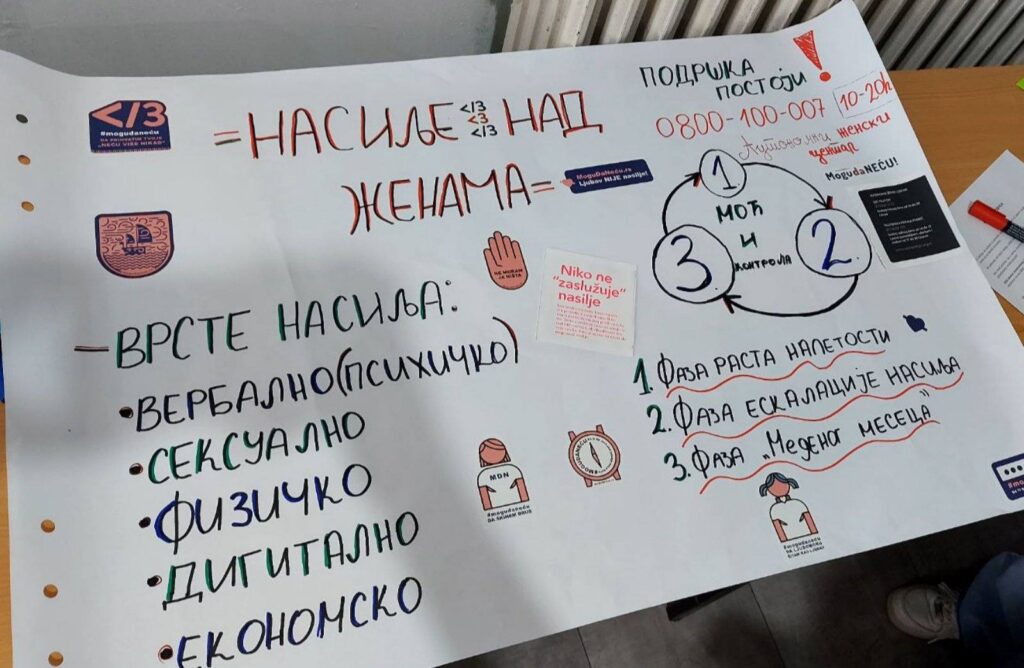 </3
#mogudaneću
DA PRIHVATIM TVOJE
"NEĆU VIŠE NIKAD"
=НАСИЉЕ </3 </3 </3 НАД
ЖЕНАМА=
MoguDaNeću.rs
Ljubav NIJE nasilje!
ПОДРШКА
ПОСТОЈИ!
0800-100-007 10-20h
Аутономни женски
центар
MogudaNEĆU!
1
2.
3.
МОЋ
И
КОНТРОЛА
NE MORAM
JA NIŠTA
Niko ne
"zaslužuje"
nasilje
-ВРСТЕ НАСИЉА:
•ВЕРБАЛНО(ПСИХИЧКО)
•СЕКСУАЛНО
•ФИЗИЧКО
•ДИГИТАЛНО
•ЕКОНОМСКО
1. ФАЗА РАСТА НАПЕТОСТИ
2. ФАЗА ЕСКАЛАЦИЈЕ НАСИЉА
3. ФАЗА „Меденог МЕСЕЦА"
MDN
#mogudaneću
#MOGUDANEĆU
#mogudaneću